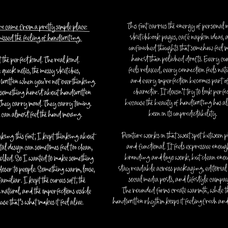 came from a pretty simple place
the feeling of handwriting.
The font carries the energy of personal
sketchbook pages, café napkin ideas, a
the perfect kind. The real kind.
unfinished thoughts that somehow feel m
quick notes, the messy sketches,
honest than polished drafts. Every cur
written when you're not overthinking
feels relaxed, every connection feels natu
something honest about handwritten
and every imperfection becomes part of
They carry mood. They carry timing.
character. It doesn't try to look perfec
can almost feel the hand moving.
because the beauty of handwriting has al
been in its unpredictability.
king this font, I kept thinking about
works in that sweet spot between p
ital design can sometimes feel too clean,
and functional. It feels expressive enough
olled. So I wanted to make something
branding and logo work, but clean enou
closer to people. Something warm, loose,
stay readable across packaging, editorial
familiar. I kept the curves soft, the
social media posts, and lifestyle campai
natural, and the imperfections visible
The rounded forms create warmth, while th
use that's what makes it feel alive.
handwritten rhythm keeps it feeling fresh and